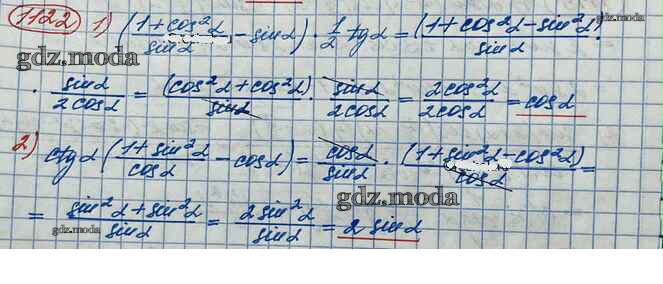 1122 1) ((1+cos²α)/sinα - sinα) · 1/2 tgα = (1+cos²α-sin²α)/sinα ·
gdz.moda
gdz.moda
· sinα/2cosα = (cos²α+cos²α)/sinα · sinα/2cosα = 2cos²α/2cosα = cosα
2) ctgα ((1+sin²α)/cosα - cosα) = cosα/sinα · (1+sin²α-cos²α)/cosα =
gdz.moda
= (sin²α+sin²α)/sinα = 2sin²α/sinα = 2 sinα
gdz.moda
gdz.moda